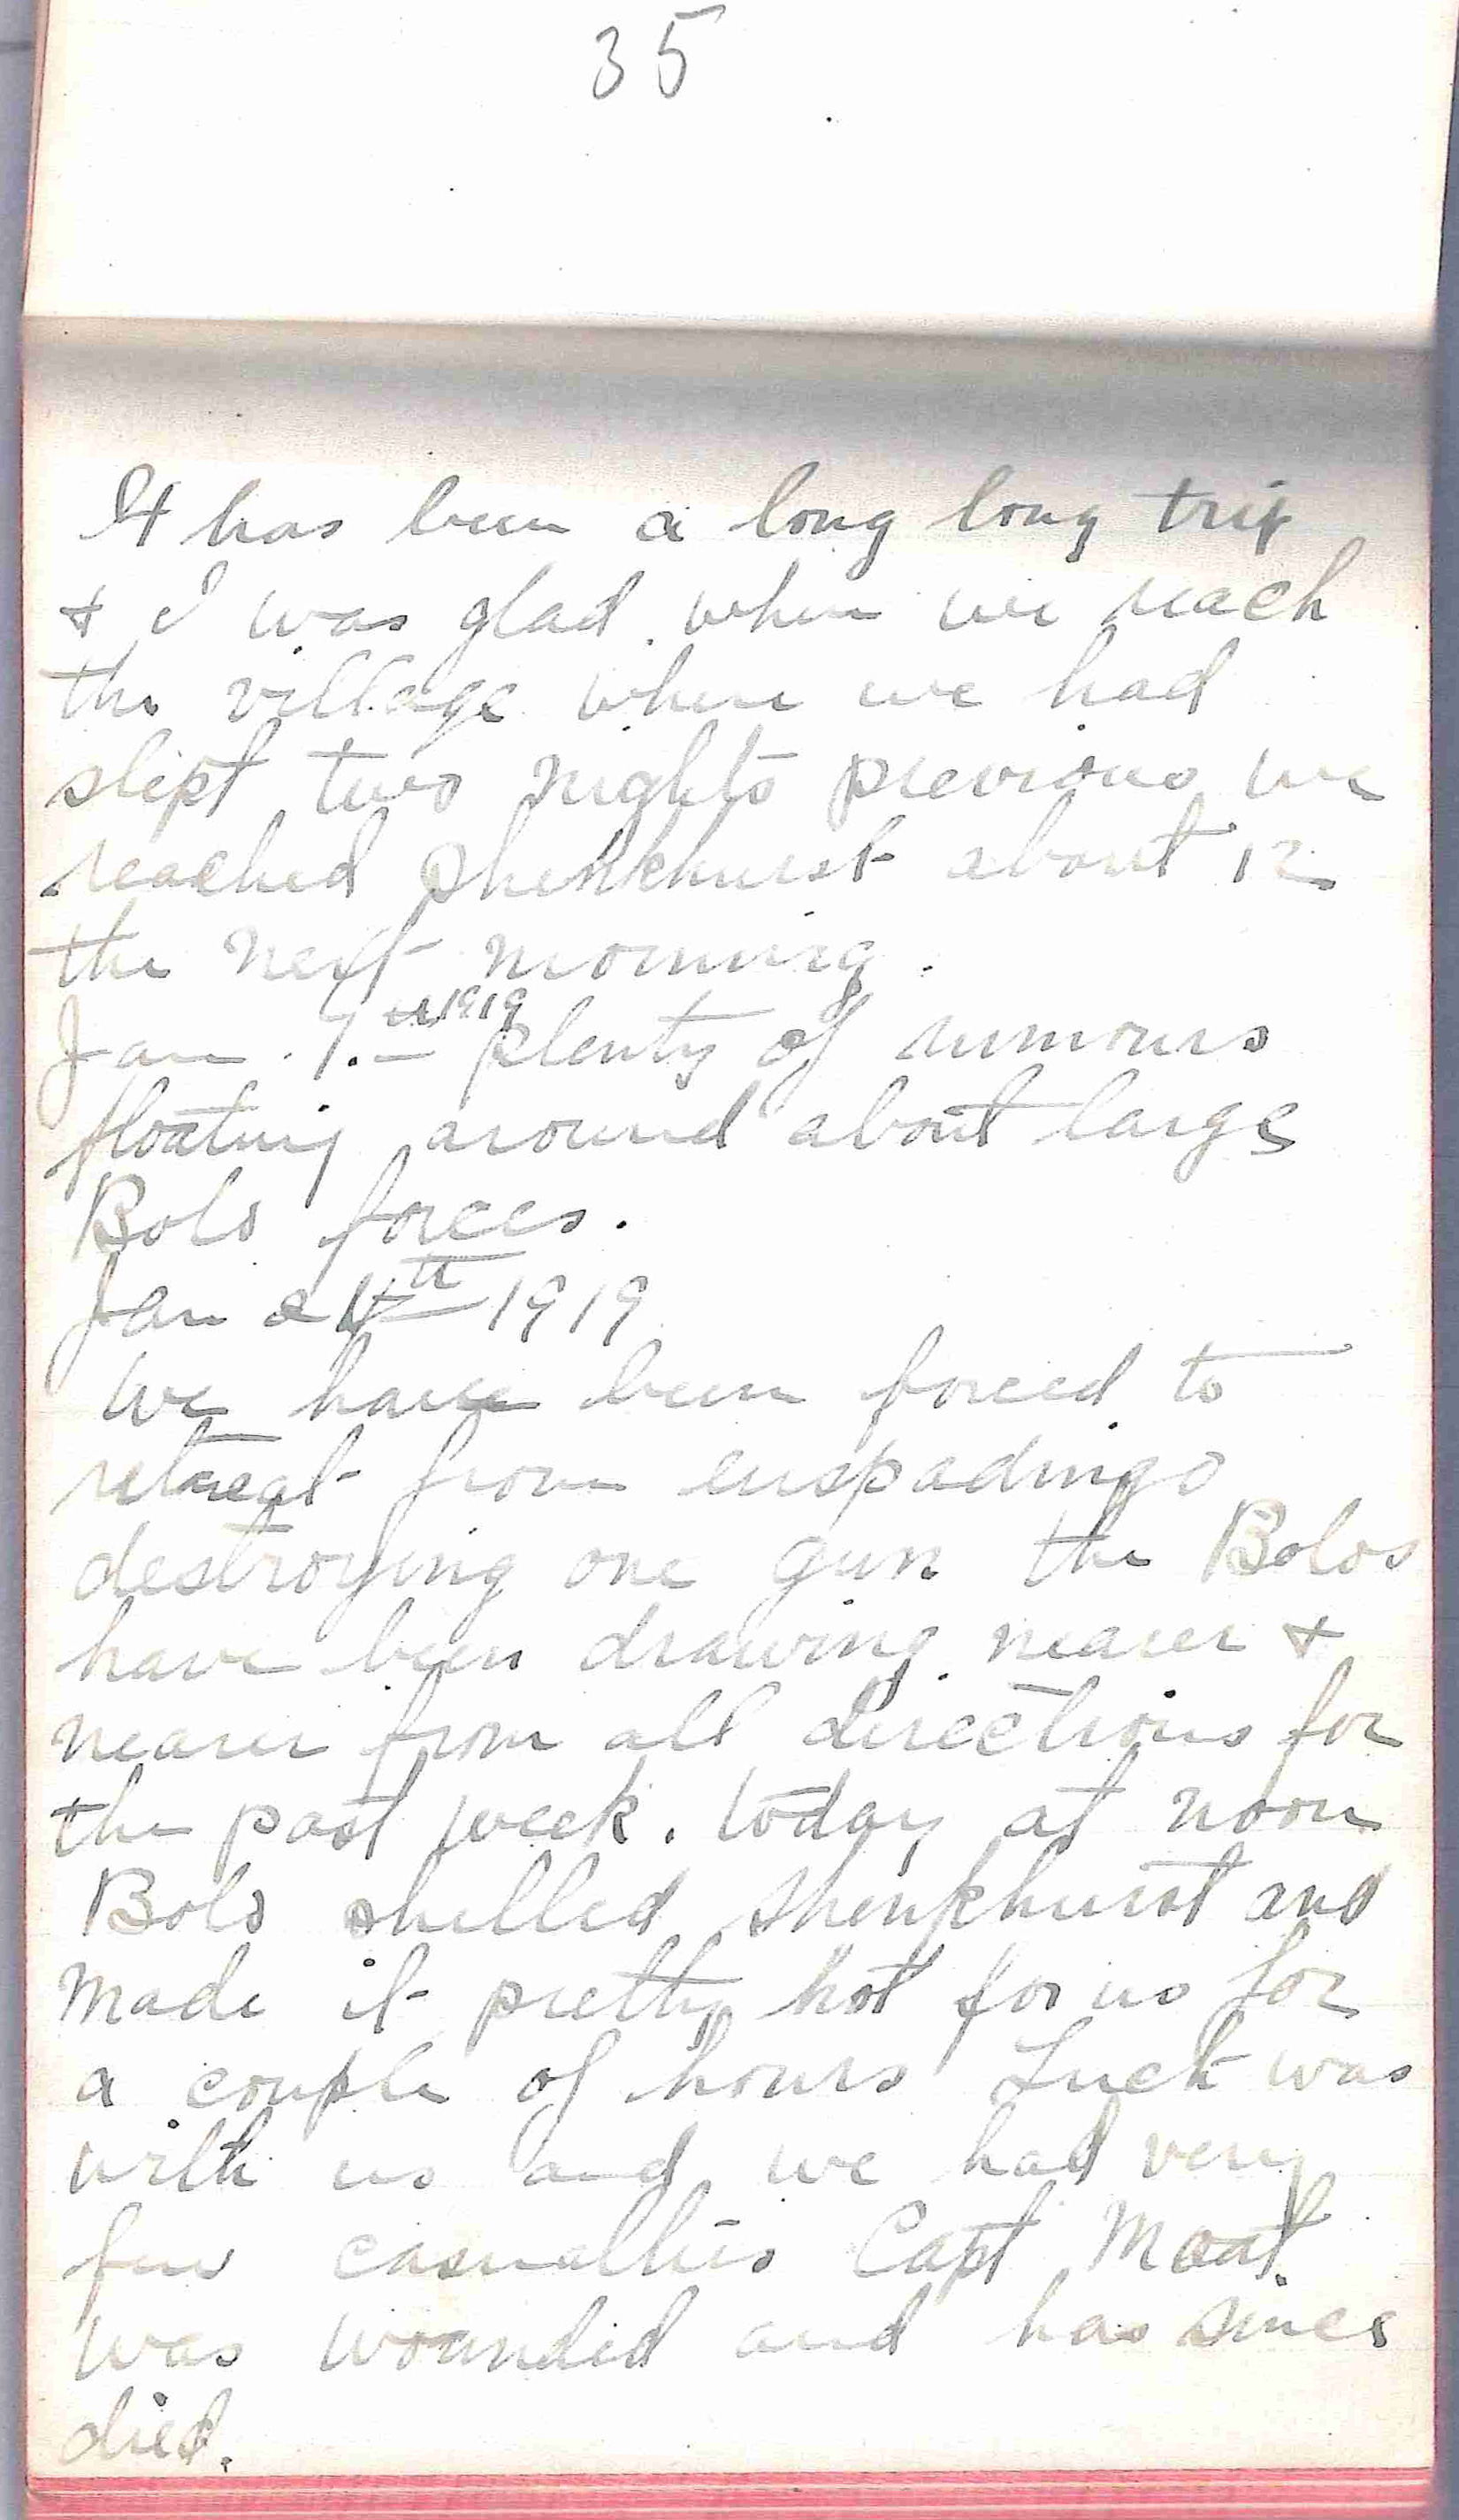 35
It has been a long long trip
& I was glad when we reach
the village where we had
slept two nights previous we
reached Shenkhurst about 12
the next morning.
Jan. 9.th 1919 plenty of rumours
floating around about large
Bolo forces.
Jan 24th 1919
We have been forced to
retreat from euspadingo
destroying one gun the Bolos
have been drawing nearer &
nearer from all directions for
the past week. today at noon
Bolo shelled Shenkhurst and
made it pretty hot for us for
a couple of hours Luck was
with us and we had very
few casualties Capt Moat
was wounded and has since
died.